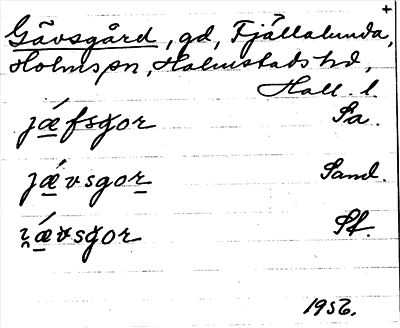 +
Gävsgård, gd, Fjällalunda,
Holms sn, Halmstads hd,
Hall. l
jǽfsgor Sa.
jǽvsgor Sand.
i̯ǽvsgor St.
1956.